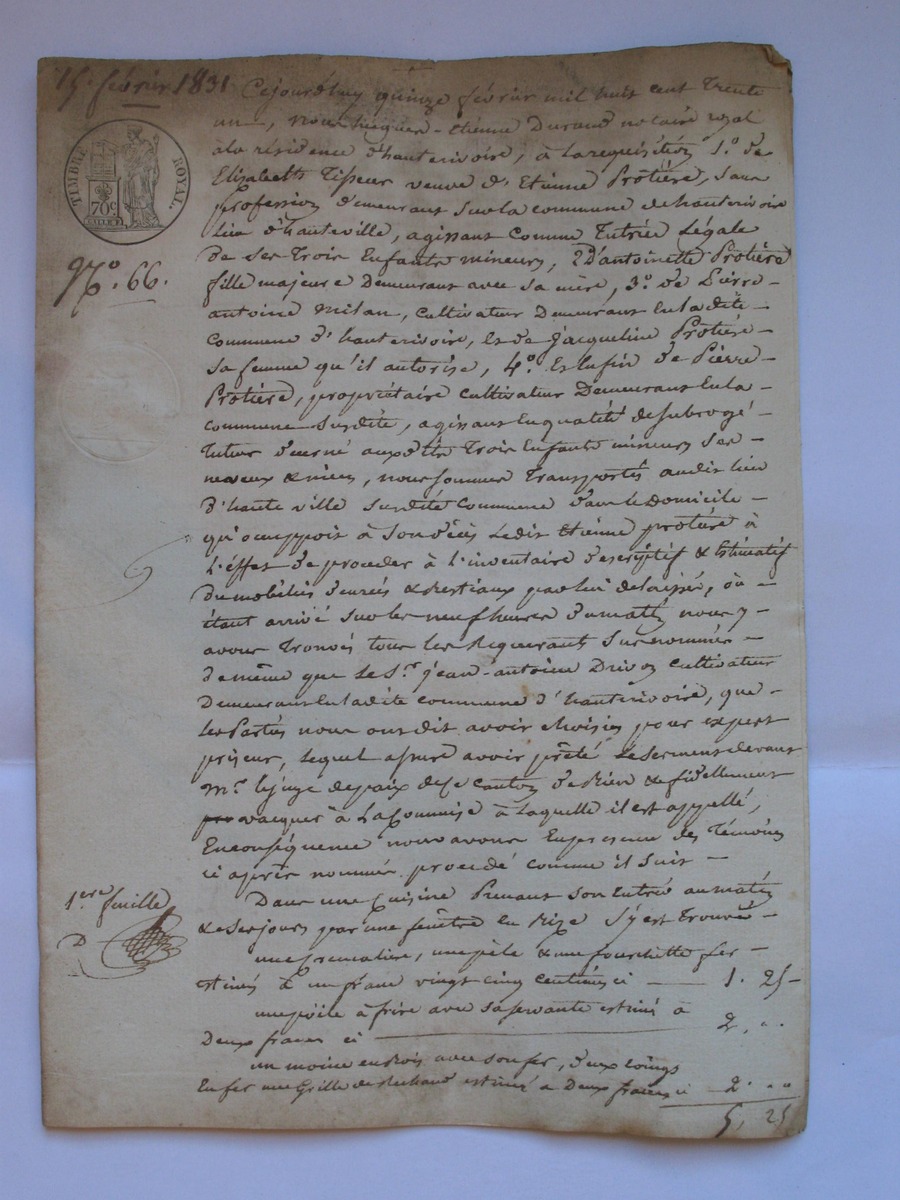 15. février 1831
TIMBRE ROYAL.
70c
N.° 66.
Cejourd'huy quinze février mil huit cent trente
un, nous Jacques-Etienne Durand notaire royal
à la résidence d'hauterivoire, à la requisition 1.° de
Elisabeth Tisseur veuve d'Etienne Protière, sans
profession demeurant sur la commune de hauterivoire
lieu d'hauteville, agissant comme tutrice légale
de ses trois Enfants mineurs, 2° d'antoinette Protière
fille majeure demeurant avec sa mère, 3.° de Pierre-
antoine Milan, cultivateur demeurant en la dite
commune d'hauterivoire, et de Jacqueline Protière
sa femme qu'il autorise, 4.° Et enfin de Pierre
Protière, propriétaire cultivateur demeurant en la
commune susdite, agissant en qualité de subrogé
tuteur décerné auxdits trois Enfants mineurs ses
neveux & nieces, nous sommes transportés audit lieu
d'hauteville susdite commune dans le domicile
qu'occuppoit à son décès ledit Etienne protière à
l'effet de proceder à l'inventaire descriptif & Estimatif
du mobilier denrés & bestiaux par lui delaissés, où
étant arrivé sur les neuf heures du matin nous y
avons trouvés tous les Requerants surnommés
de même que le S.r jean-antoine Drivon cultivateur
demeurant en ladite commune d'hauterivoire, que
les Parties nous ont dit avoir choisies pour expert
priseur, lequel assure avoir prêté le serment devant
M.r le juge de paix de ce canton de bien & fidellement
vacquer à la commise à laquelle il est appellé,
En conséquence nous avons En presence des témoins
ci après nommés procedé comme il suit
Dans une cuisine Prenant son entrée au matin
& ses jours par une fenêtre en Bize s'y est trouvé
une cremaliere, une pele & une fourchette fer
estimés à un franc vingt cinq centimes ci 1. 25
une poile à frire avec sa servante estimés a
Deux francs ci 2. " "
un moine en bois avec son fer, deux coings
En fer une Grille de Rechaud estimés a Deux francs ci 2. " "
5, 25
1ere feuille
D